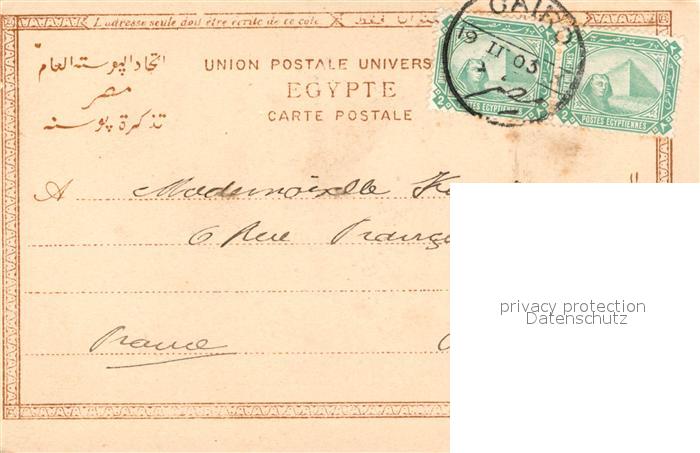 L'adresse seule doit être écrite de ce coté
اتحاد البوسته العام
مصر
تذكرة بوسته
UNION POSTALE UNIVERS
EGYPTE
CARTE POSTALE
CAIRO
19 II 03
مصر
POSTES EGYPTIENNES
POSTES EGYPTIENNES
A Mademoiselle
6 Rue
France
privacy protection
Datenschutz